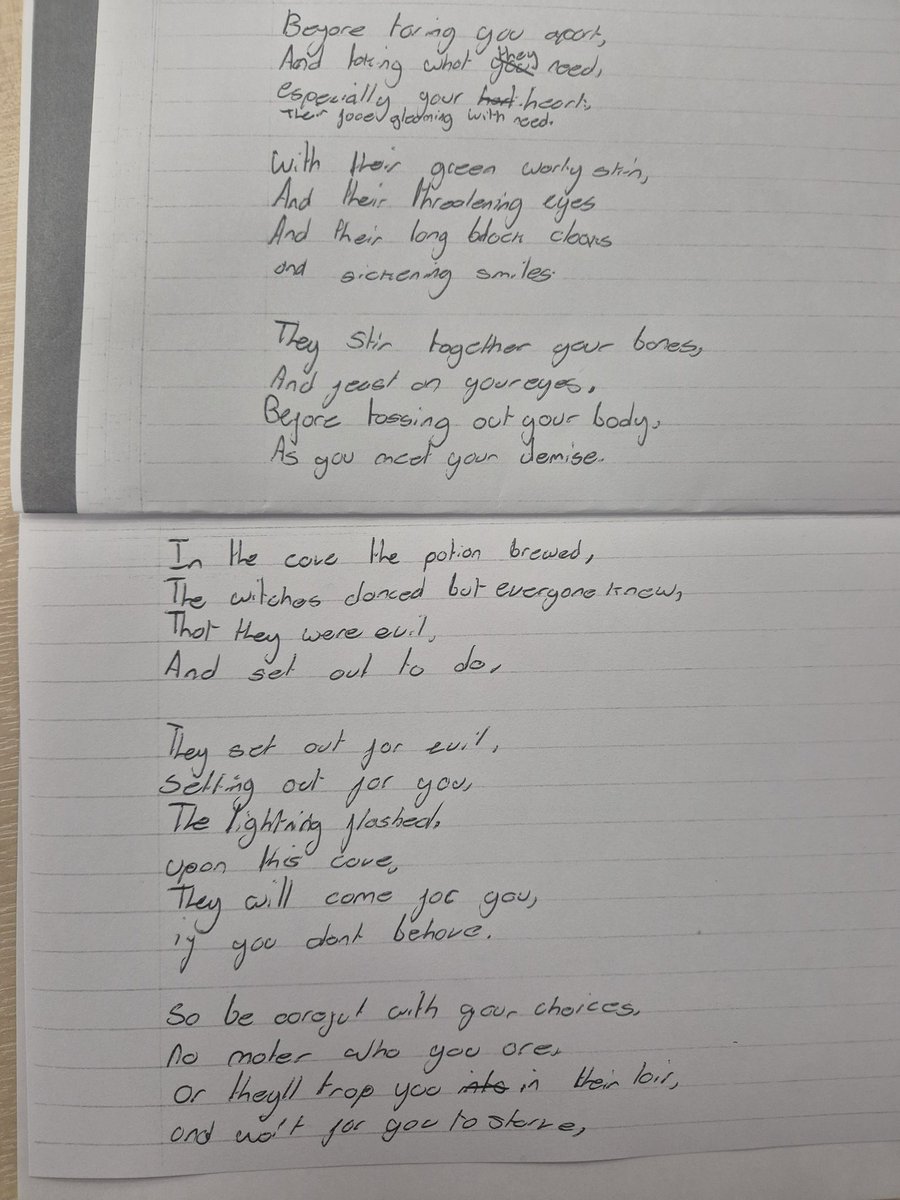 Before taring you apart,
And taking what you they need,
especially your hart heart,
Their faces gleaming with need.
With their green warty skin,
And their threatening eyes
And their long black cloaks
and sickening smiles.
They stir together your bones,
And feast on your eyes,
Before tossing out your body,
As you meet your demise.
In the cave the potion brewed,
The witches danced but everyone knew,
That they were evil,
And set out to do,
They set out for evil,
Setting out for you,
The lightning flashed,
upon this cave,
They will come for you,
if you dont behave.
So be carefut with your choices,
no mater who you are,
or theyll trap you into in their lair,
and wait for you to starve,